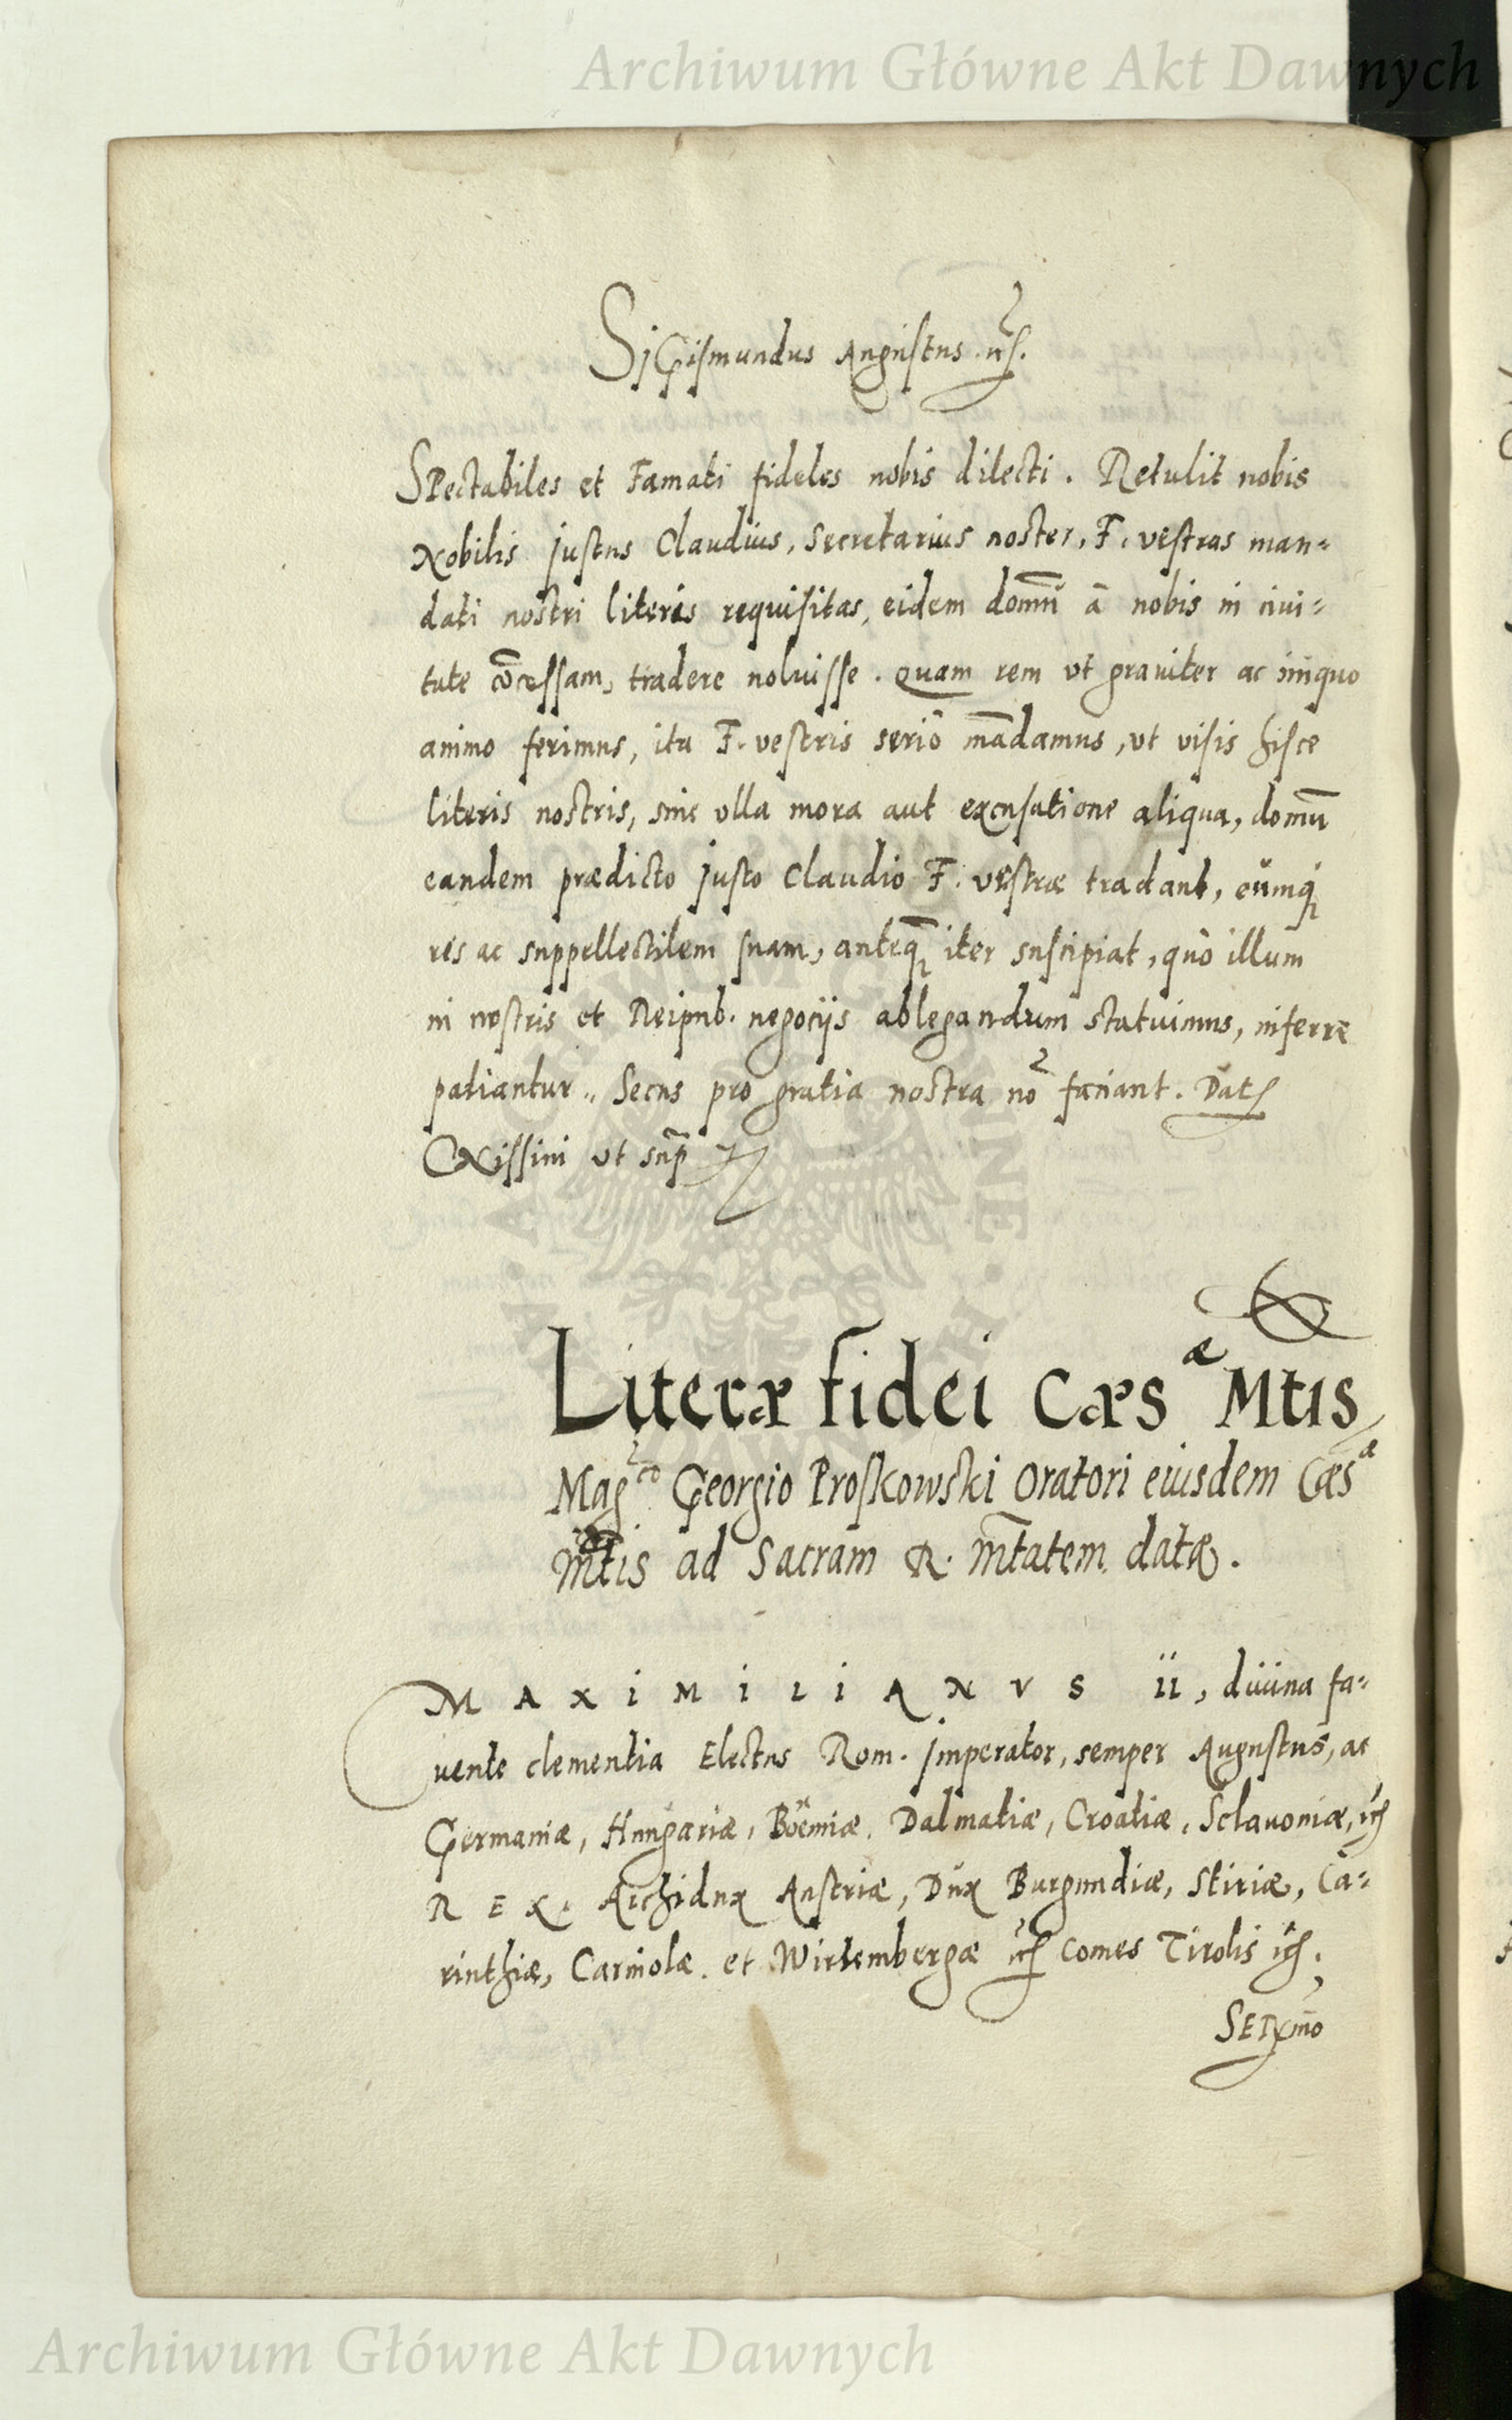 Archiwum Główne Akt Dawnych
Sigismundus Augustus etc.
Spectabiles et Famati fideles nobis dilecti. Retulit nobis
Nobilis Justus Claudius, Secretarius noster, F. vestras man=
dati nostri literis requisitas, eidem domū à nobis in civi=
tate cōcessam, tradere noluisse. Quam rem ut graviter ac iniquo
animo ferimus, ita F. vestris seriò mādamus, ut visis hisce
literis nostris, sine ulla mora aut excusatione aliqua, domū
eandem prædicto Justo Claudio F. vestræ tradant, eumq;
res ac suppellectilem suam, anteq̄ iter suscipiat, quò illum
in nostris et Reipub. negocijs ablegandum statuimus, inferre
patiantur. Secus pro gratia nostra nō faciant. Dat.
Knissini ut sup̄
Literæ fidei Cæsæ Mtis
Magco Georgio Proskowski Oratori eiusdem Cæsæ
Mt̄is ad Sacram R. Mt̄atem datæ.
MAXIMILIANVS ii, divina fa=
vente clementia Electus Rom. Imperator, semper Augustus, ac
Germaniæ, Hungariæ, Boemiæ, Dalmatiæ, Croatiæ, Sclavoniæ, etc
REX. Archidux Austriæ, Dux Burgundiæ, Stiriæ, Ca=
rinthiæ, Carniolæ et Wirtembergæ etc Comes Tirolis etc.
Serx̄mo
Archiwum Główne Akt Dawnych